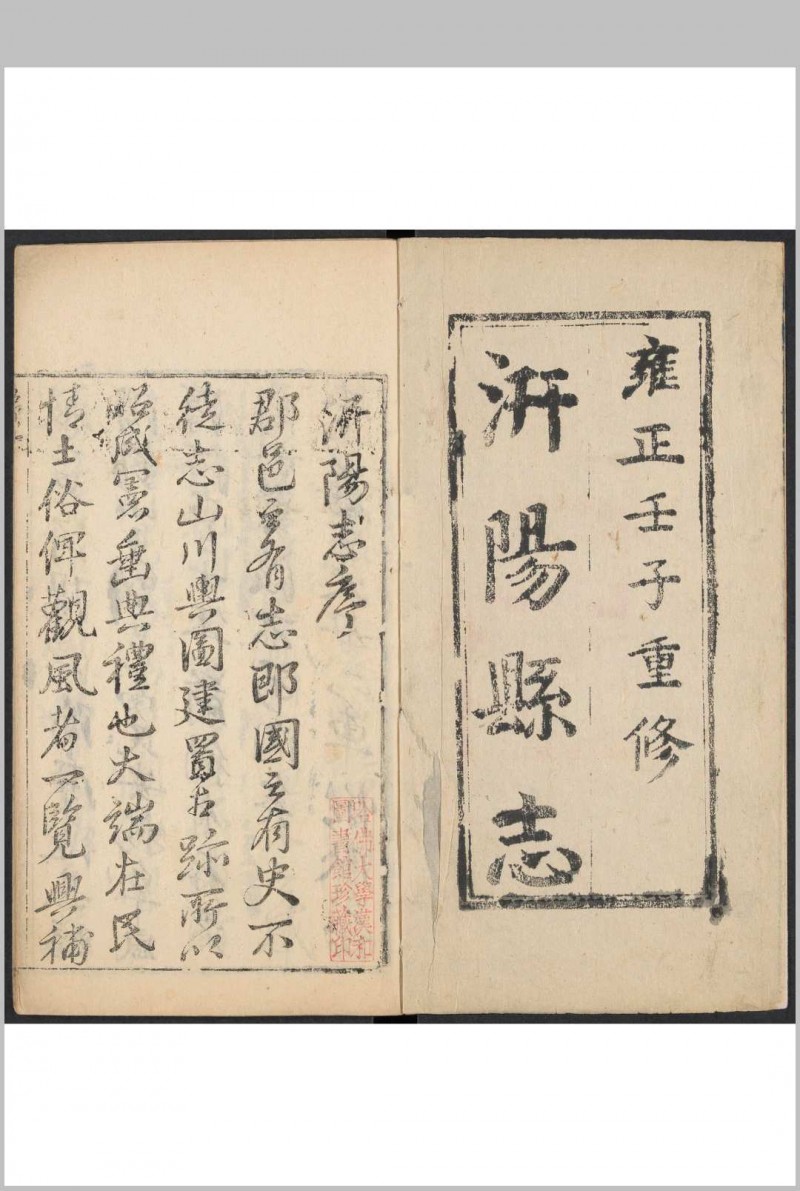 雍正壬子重修
汧陽縣志
汧陽志序
郡邑之有志即國之有史不
徒志山川輿圖建置古跡所以
昭咸憲垂典禮也大端在民
情土俗俾觀風者一覽興補
哈佛大學漢和
圖書館珍藏印